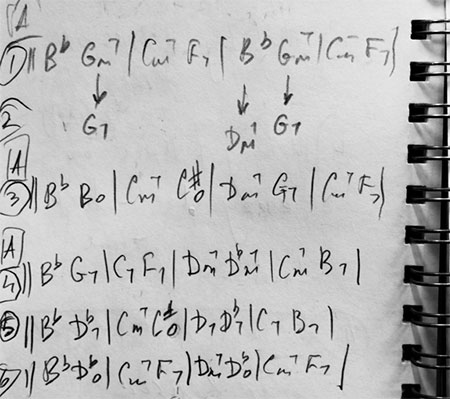 A
① || B♭ Gm7 | Cm7 F7 | B♭ Gm7 | Cm7 F7 |
② G7 Dm7 G7
A
③ || B♭ Bo | Cm7 C#o | Dm7 G7 | Cm7 F7 |
A
④ || B♭ G7 | C7 F7 | Dm7 D♭m7 | Cm7 B7 |
⑤ || B♭ D♭7 | Cm7 C#o | D7 D♭7 | C7 B7 |
⑥ || B♭ D♭o | Cm7 F7 | Dm7 D♭o | Cm7 F7 |